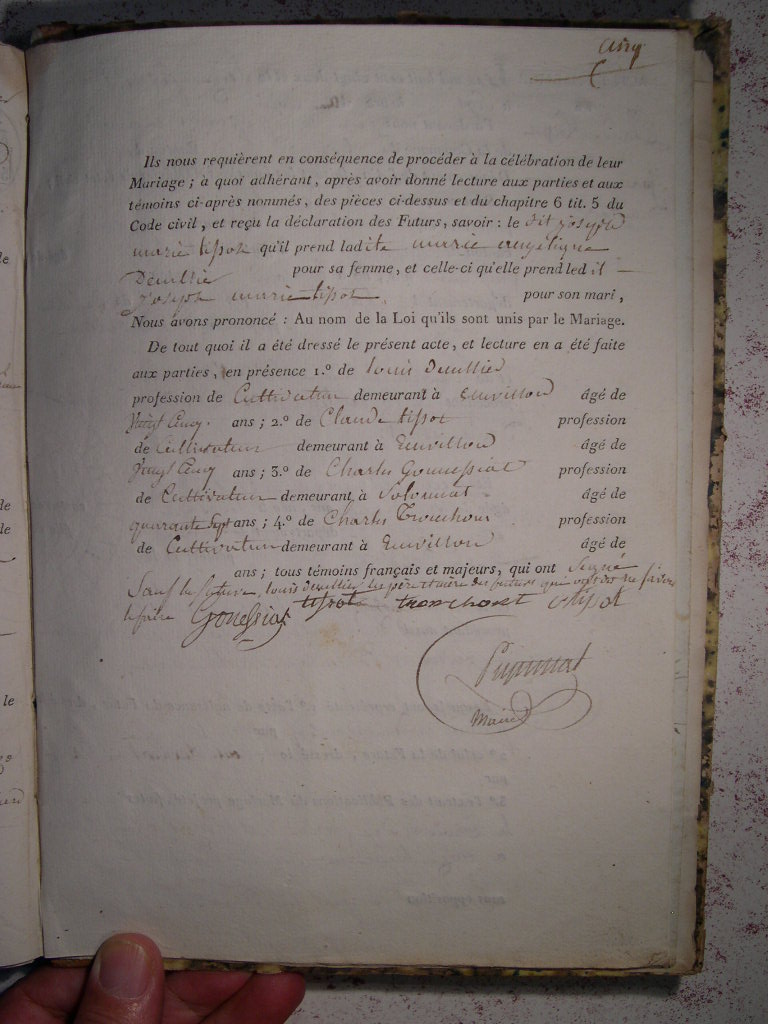 cinq
Ils nous requièrent en conséquence de procéder à la célébration de leur
Mariage ; à quoi adhérant, après avoir donné lecture aux parties et aux
témoins ci-après nommés, des pièces ci-dessus et du chapitre 6 tit. 5 du
Code civil, et reçu la déclaration des Futurs, savoir : le dit joseph
marie tissot qu'il prend ladite marie angelique
pour sa femme, et celle-ci qu'elle prend led it
joseph marie tissot pour son mari,
Nous avons prononcé : Au nom de la Loi qu'ils sont unis par le Mariage.
De tout quoi il a été dressé le présent acte, et lecture en a été faite
aux parties, en présence 1.º de louis
profession de Cultivateur demeurant à
Vingt Cinq ans ; 2.º de Claude tissot profession âgé de
de Cultivateur demeurant à âgé de
Vingt Cinq ans ; 3.º de Charles profession
de Cultivateur demeurant à Solomiat âgé de
quarante Sept ans ; 4.º de Charles profession
de Cultivateur demeurant à âgé de
ans ; tous témoins français et majeurs, qui ont Signé
Sauf la future, louis les père et mère des futurs qui ont dit ne savoir
le faire tissot tissot
Maire